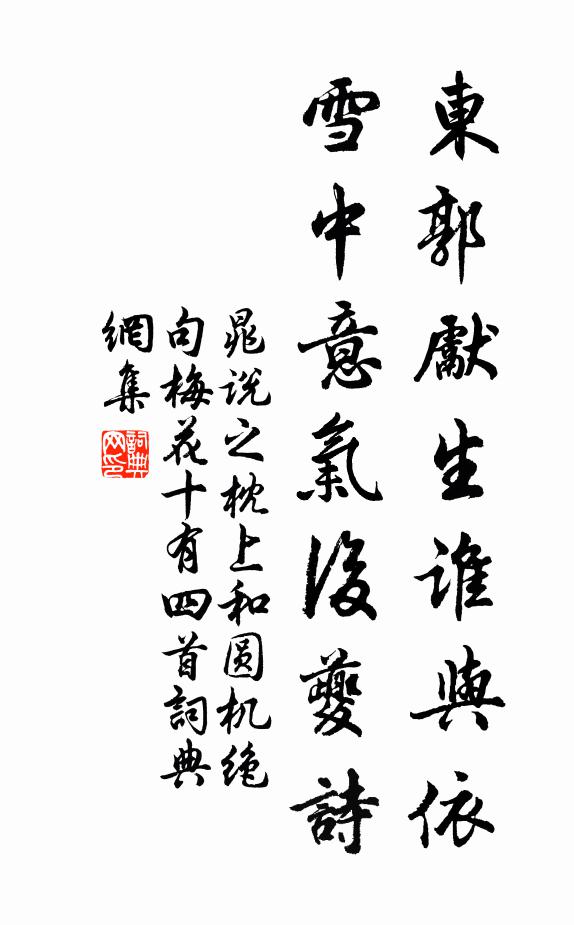 東郭獻生誰與依
雪中意氣後夔詩
晁说之枕上和圆机绝
句梅花十有四首詞典
網集
詞典
网印